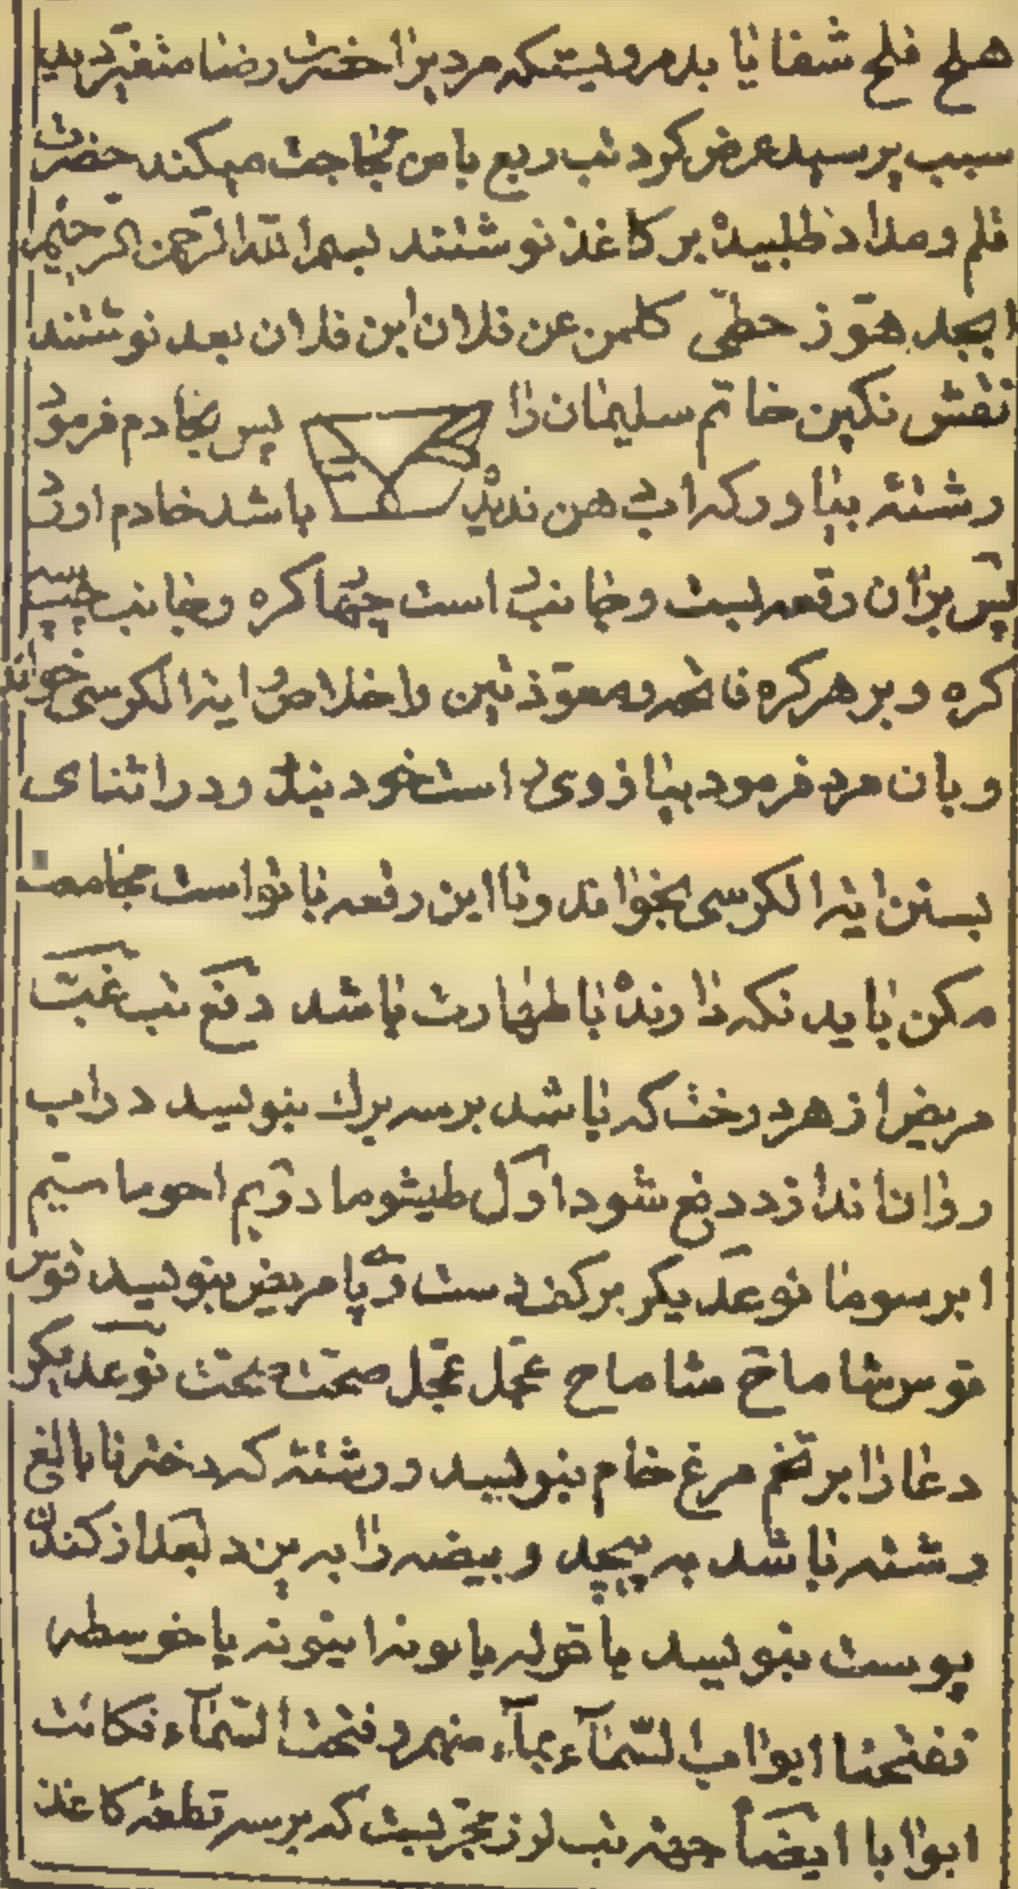 هلح فلح شفا یابد مرویستکه مردیرا حضرت رضا متغیر دید
سبب پرسید عرض کرد تب ربع با من لجاجت میکند حضرت
قلم و مداد طلبیده بر کاغذ نوشتند بسم الله الرحمن الرحیم
ابجد هوز حطی کلمن عن فلان ابن فلان بعد نوشتند
نقش نکین خاتم سلیمان را پس بخادم فرمود
رشته بیاور که اب بر آن باشد خادم اورد
پس بران رقعه بست و جانب راست چهار کره و جانب چپ سه
کره و بر هر کره فاتحه و معوذتین و اخلاص و ایة الکرسی خواند
و بان مرد فرمود ببازوی راست خود بند و در اثنای
بستن ایة الکرسی بخواند و تا این رقعه با تواست مجامعت
مکن باید نکه دارنده با طهارت باشد دفع تب غب
مریض از هر درخت که باشد بر سه برك بنویسد در اب
روان اندازد دفع شود اول طیشوما دویم احوما سیم
ابرسوما نوعدیکر بر کف دست و پا مریض بنویسد قوس
قوس شاماخ مشاماح عجل عجل صحت صحت نوعدیکر
دعا را بر تخم مرغ خام بنویسد و رشته که دختر نابالغ
رشته باشد به پیچد و بیضه را به پزد بعد از کندن
پوست بنویسد یا قوله یا بونه ا یا خوسطه
ففتحنا ابواب السماء بماء منهمر و فتحت السماء فکانت
ابوابا ایضا جهة تب لرز مجربست که بر سه قطعه کاغذ